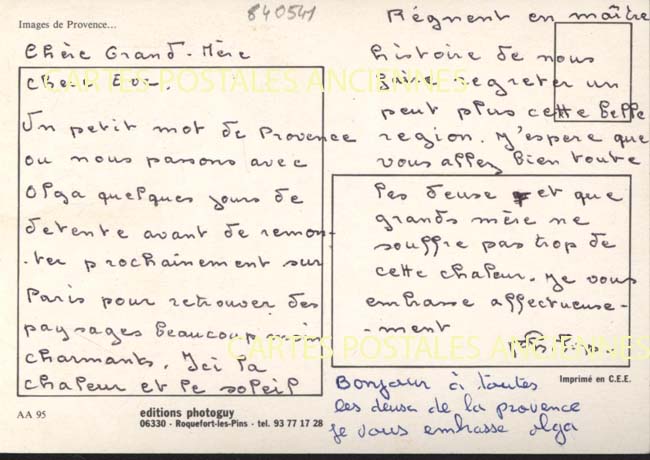 Images de Provence...
840541
Chère Grand-Mère
Chère Eve.
Un petit mot de Provence
ou nous passons avec
Olga quelques jours de
detente avant de remon-
-ter prochainement sur
Paris pour retrouver des
paysages beaucoup
charmants. Ici la
chaleur et le soleil
Régnent en maître
histoire de nous
faire regreter un
peut plus cette belle
region. J'espere que
vous allez bien toute
les deuse et que
grands mère ne
souffre pas trop de
cette chaleur. Je vous
embrasse affectueuse-
-ment
Bonjour à toutes
les deusa de la provence
je vous embrasse olga
Imprimé en C.E.E.
AA 95
editions photoguy
06330 - Roquefort-les-Pins - tel. 93 77 17 28
CARTES POSTALES ANCIENNES
CARTES POSTALES ANCIENNES